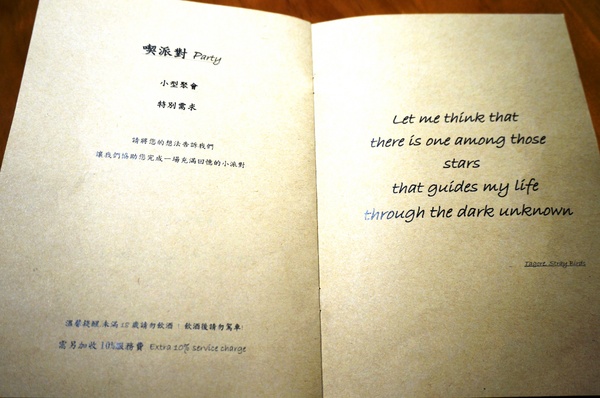 喫派對 Party
小型聚會
特別需求
請將您的想法告訴我們
讓我們協助您完成一場充滿回憶的小派對
溫馨提醒 未滿 18 歲請勿飲酒，飲酒後請勿駕車
需另加收 10%服務費 Extra 10% service charge
Let me think that
there is one among those
stars
that guides my life
through the dark unknown
Tagore, Stray Birds